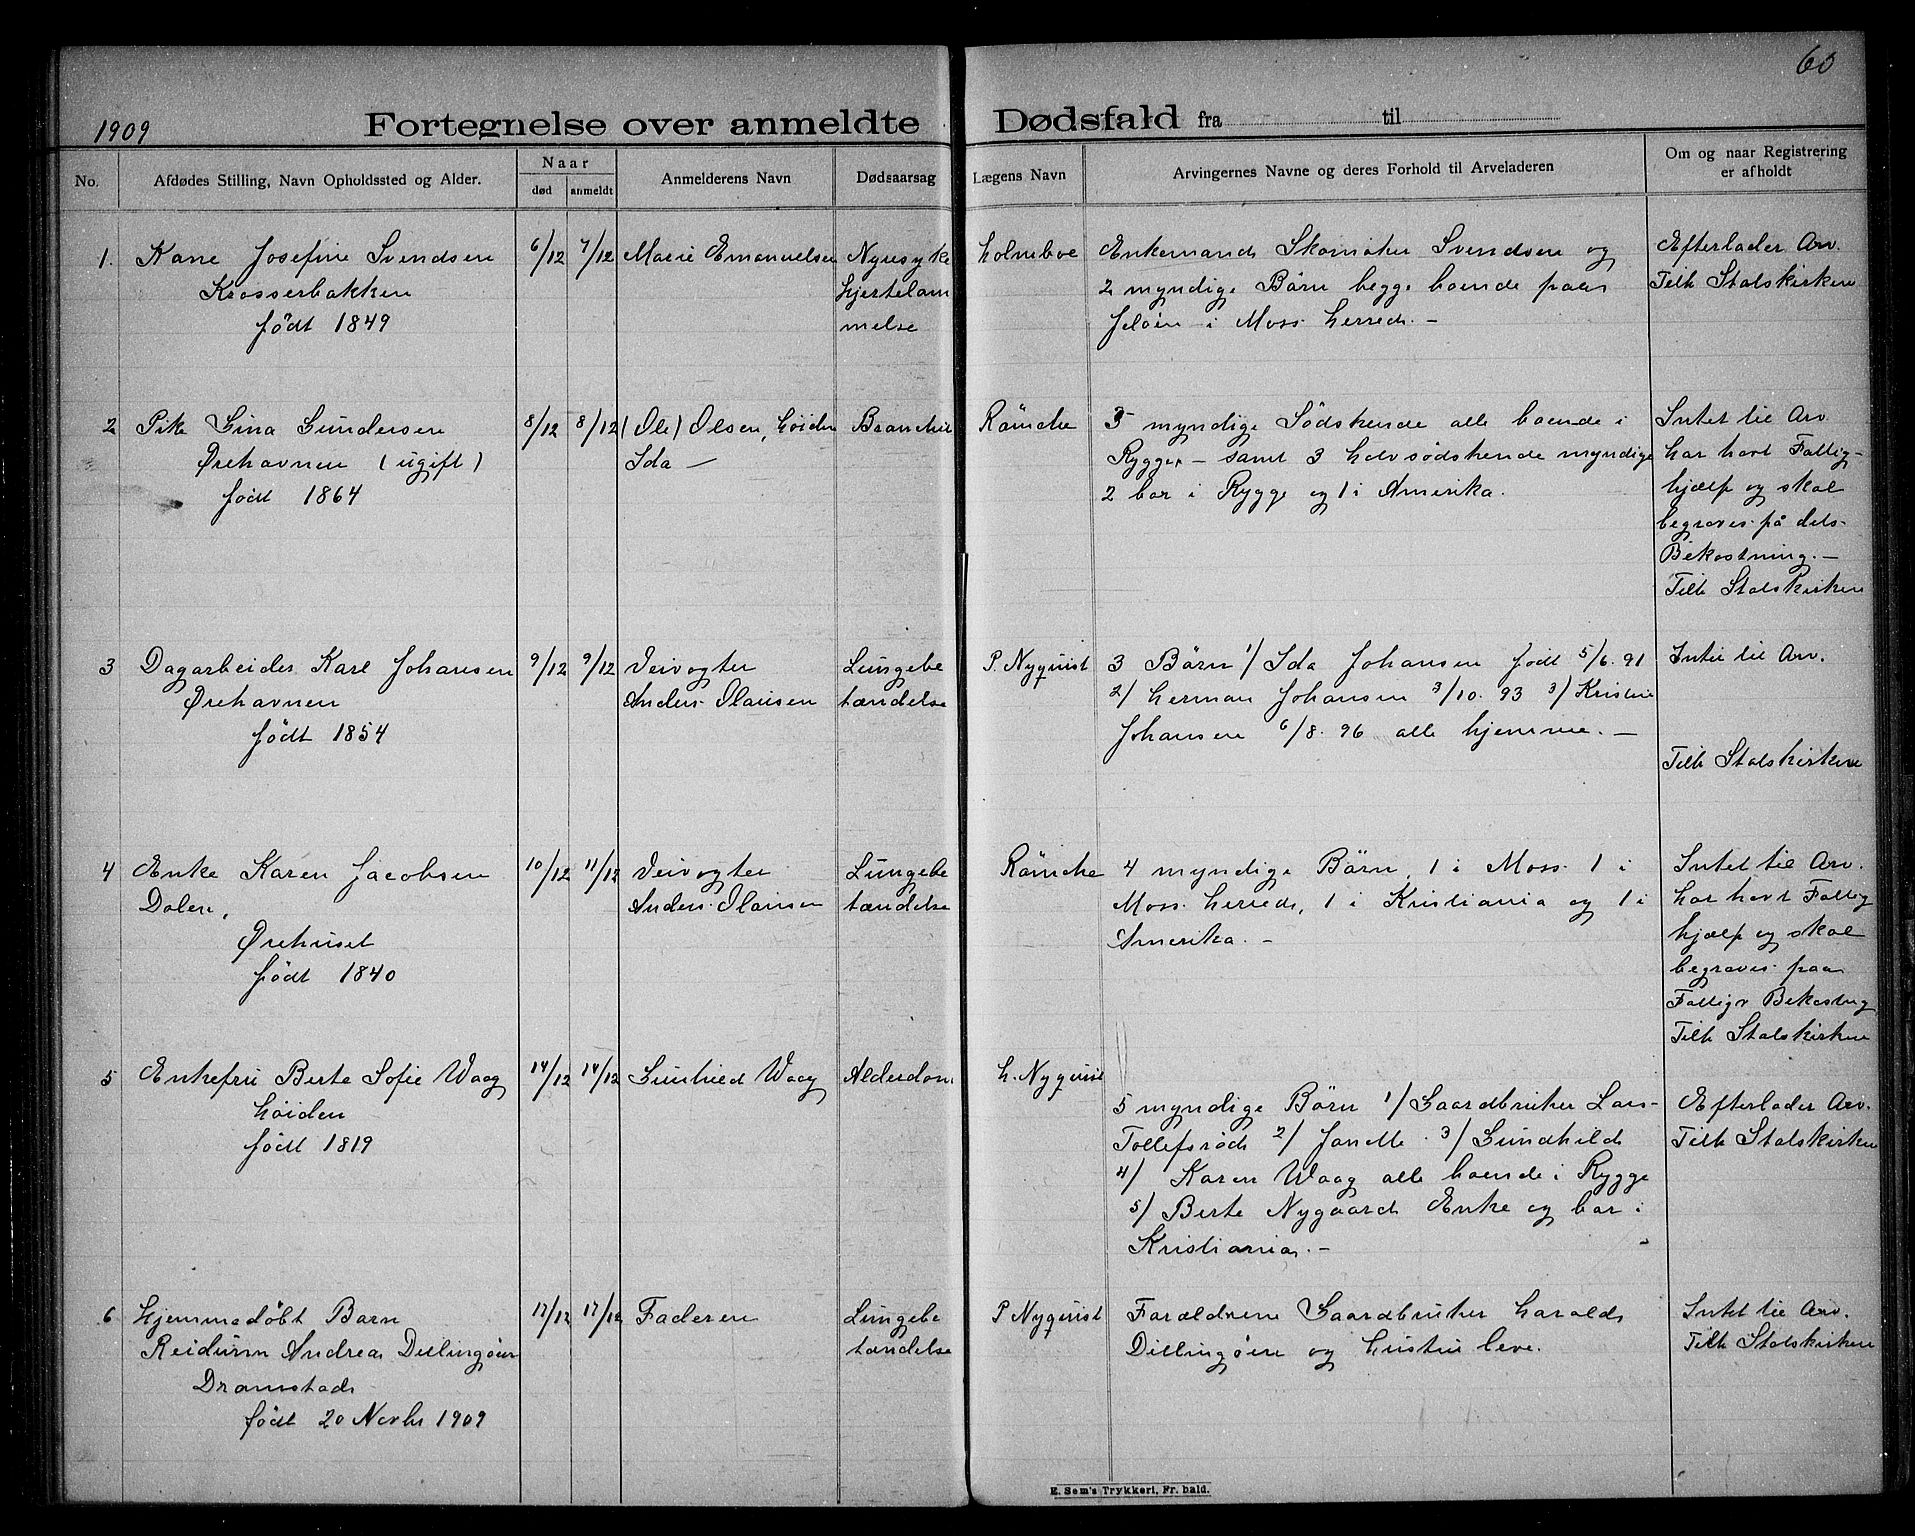 60
1909 Fortegnelse over anmeldte Dødsfald fra til
No.
Afdødes Stilling, Navn Opholdssted og Alder.
Naar
død
anmeldt
Anmelderens Navn
Dødsaarsag
Lægens Navn
Arvingernes Navne og deres Forhold til Arveladeren
Om og naar Registrering
er afholdt
1. Kone Josefine Svendsen
Krosserbakken
født 1849
6/12
7/12
Marie Emanuelsen
Nyresyke
Hjertelam
melse
Holmboe
Enkemand Skomaker Svendsen og
2 myndige Børn begge boende paa
Jeløen i Moss Herred. —
Efterlader Arv.
Tilh Statskirken
2 Pike Gina Gundersen
Ørehavnen (ugift)
født 1864
8/12
8/12
(Ole) Olsen, Høiden
Ida —
Rømcke
3 myndige Sødskende alle boende i
Rygge — samt 3 halvsødskende myndige
2 bor i Rygge og 1 i Amerika.
Intet til Arv.
har havt Fattig-
hjælp og skal
begraves på dets
Bekostning. —
Tilh Statskirken
3 Dagarbeider Karl Johansen
Ørehavnen
født 1854
9/12
9/12
Veivogter
Anders Olausen
Lungebe
tændelse
P. Nyquist
3 Børn 1/ Ida Johansen født 5/6. 91
2/ Herman Johansen 3/10. 93 3/ Kristine
Johansen 6/8. 96 alle hjemme. —
Intet til Arv.
Tilh Statskirken
4 Enke Karen Jacobsen
Dalen,
Ørehuset
født 1840
10/12
11/12
Veivogter
Anders Olausen
Lungebe
tændelse
Rømcke
4 myndige Børn, 1 i Moss 1 i
Moss Herred, 1 i Kristiania og 1 i
Amerika. —
Intet til Arv.
har havt Fattig
hjælp og skal
begraves paa
Fattigv Bekostng
Tilh Statskirken
5 Enkefru Berte Sofie Waag
Høiden
født 1819
14/12
14/12
Gunhild Waag
Alderdom
H. Nyquist
5 myndige Børn 1/ Gaardbruker Lars
Tollefsrød 2/ Janette 3/ Gundhild
4/ Karen Waag alle boende i Rygge
5/ Berte Nygaard Enke og bor i
Kristiania. —
Efterlader Arv.
Tilh Statskirken
6 Hjemmedøbt Barn
Reidunn Andrea Dillingøen
Dramstad
født 20 Novbr 1909
17/12
17/12
Faderen
Lungebe
tændelse
P Nyquist
Forældrene Gaardbruker Harald
Dillingøen og Hustru leve.
Intet til Arv.
Tilh Statskirken
E. Sem's Trykkeri, Fr. hald.